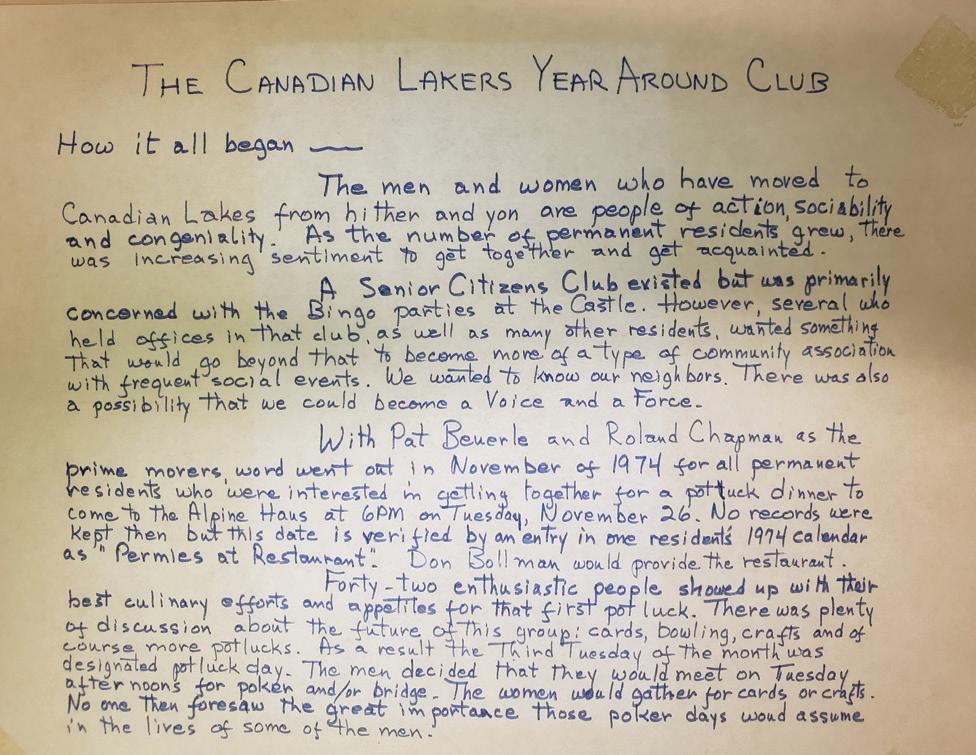 THE CANADIAN LAKERS YEAR AROUND CLUB
How it all began —
The men and women who have moved to
Canadian Lakes from hither and yon are people of action, sociability
and congeniality. As the number of permanent residents grew, there
was increasing sentiment to get together and get acquainted.
A Senior Citizens Club existed but was primarily
concerned with the Bingo parties at the Castle. However, several who
held offices in that club, as well as many other residents, wanted something
that would go beyond that to become more of a type of community association
with frequent social events. We wanted to know our neighbors. There was also
a possibility that we could become a Voice and a Force.
With Pat Beuerle and Roland Chapman as the
prime movers, word went out in November of 1974 for all permanent
residents who were interested in getting together for a potluck dinner to
come to the Alpine Haus at 6PM on Tuesday, November 26. No records were
kept then but this date is verified by an entry in one resident's 1974 calendar
as "Permies at Restaurant". Don Bollman would provide the restaurant.
Forty-two enthusiastic people showed up with their
best culinary efforts and appetites for that first pot luck. There was plenty
of discussion about the future of this group: cards, bowling, crafts and of
course more potlucks. As a result the Third Tuesday of the month was
designated potluck day. The men decided that they would meet on Tuesday
afternoons for poker and/or bridge. The women would gather for cards or crafts.
No one then foresaw the great importance those poker days woud assume
in the lives of some of the men.